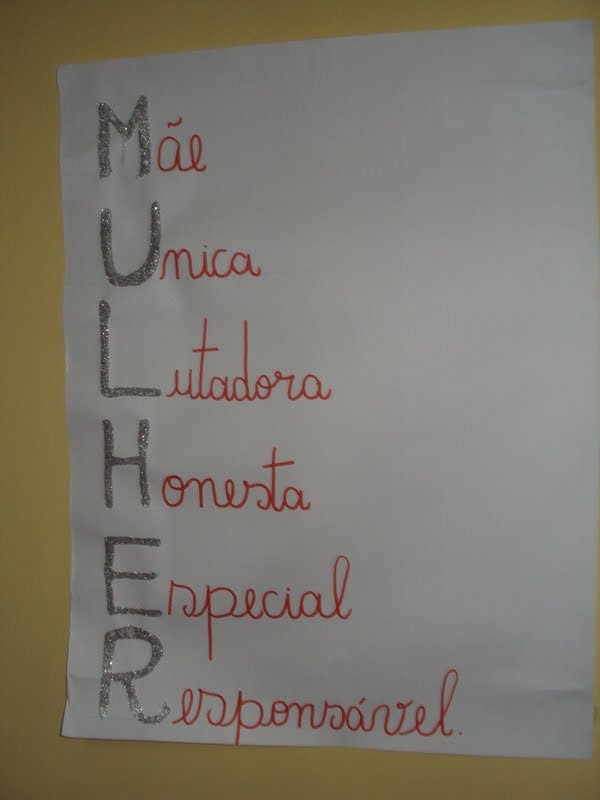 Mãe
Unica
Lutadora
Honesta
Especial
Responsável.